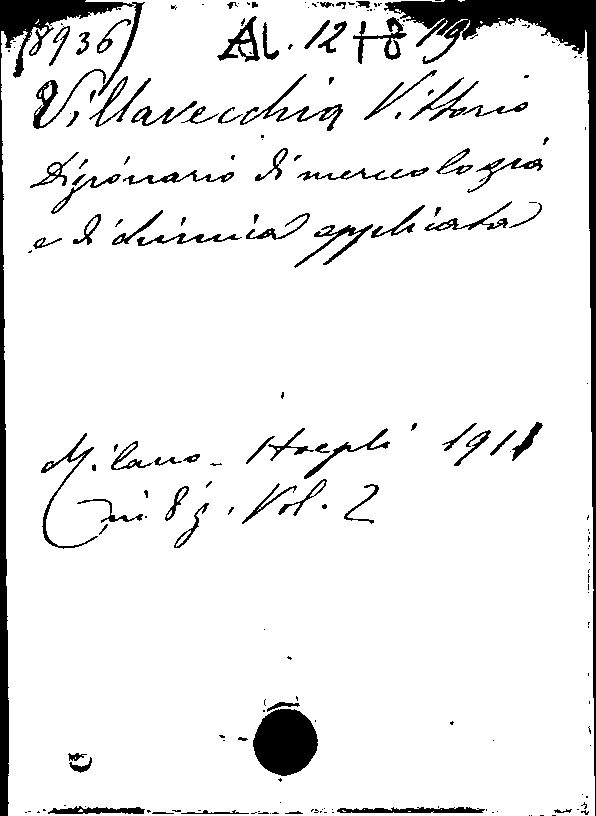 (8936) Al. 12 + 8 19
Villavecchia Vittorio
Dizionario di merceologia
e di chimica applicata
Milano - Hoepli 1911
in 8º. Vol. 2